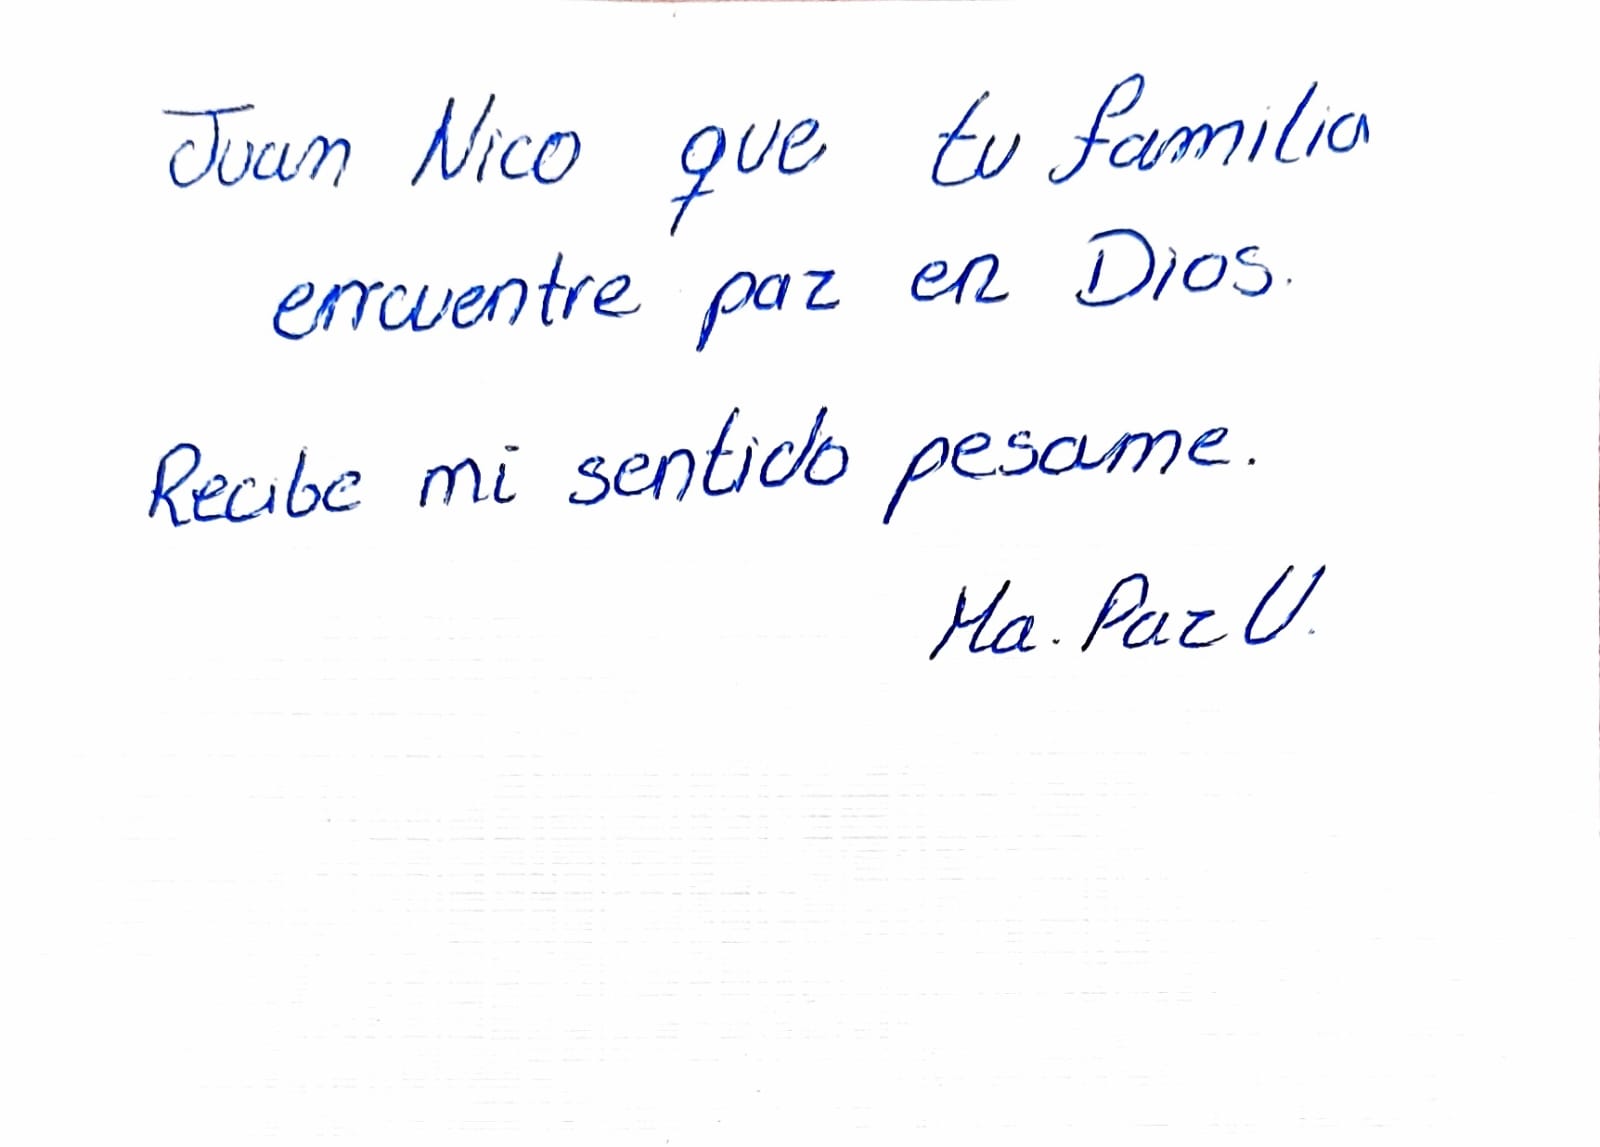 Juan Nico que tu familia
encuentre paz en Dios.
Recibe mi sentido pesame.
Ma. Paz U.